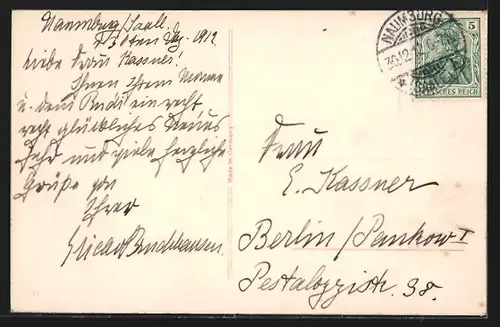 Naumburg/Saale.
30ten Dez. 1912
Liebe Frau Kassner!
Ihnen Ihrem Manne
u. dem Rudi ein recht
recht glückliches Neues
Jahr und viele herzliche
Grüße von
Ihrer
NAUMBURG
30.12.12
5
DEUTSCHES REICH
Made in Germany
Frau
E. Kassner
Berlin/Pankow I
Pestalozzistr. 38.